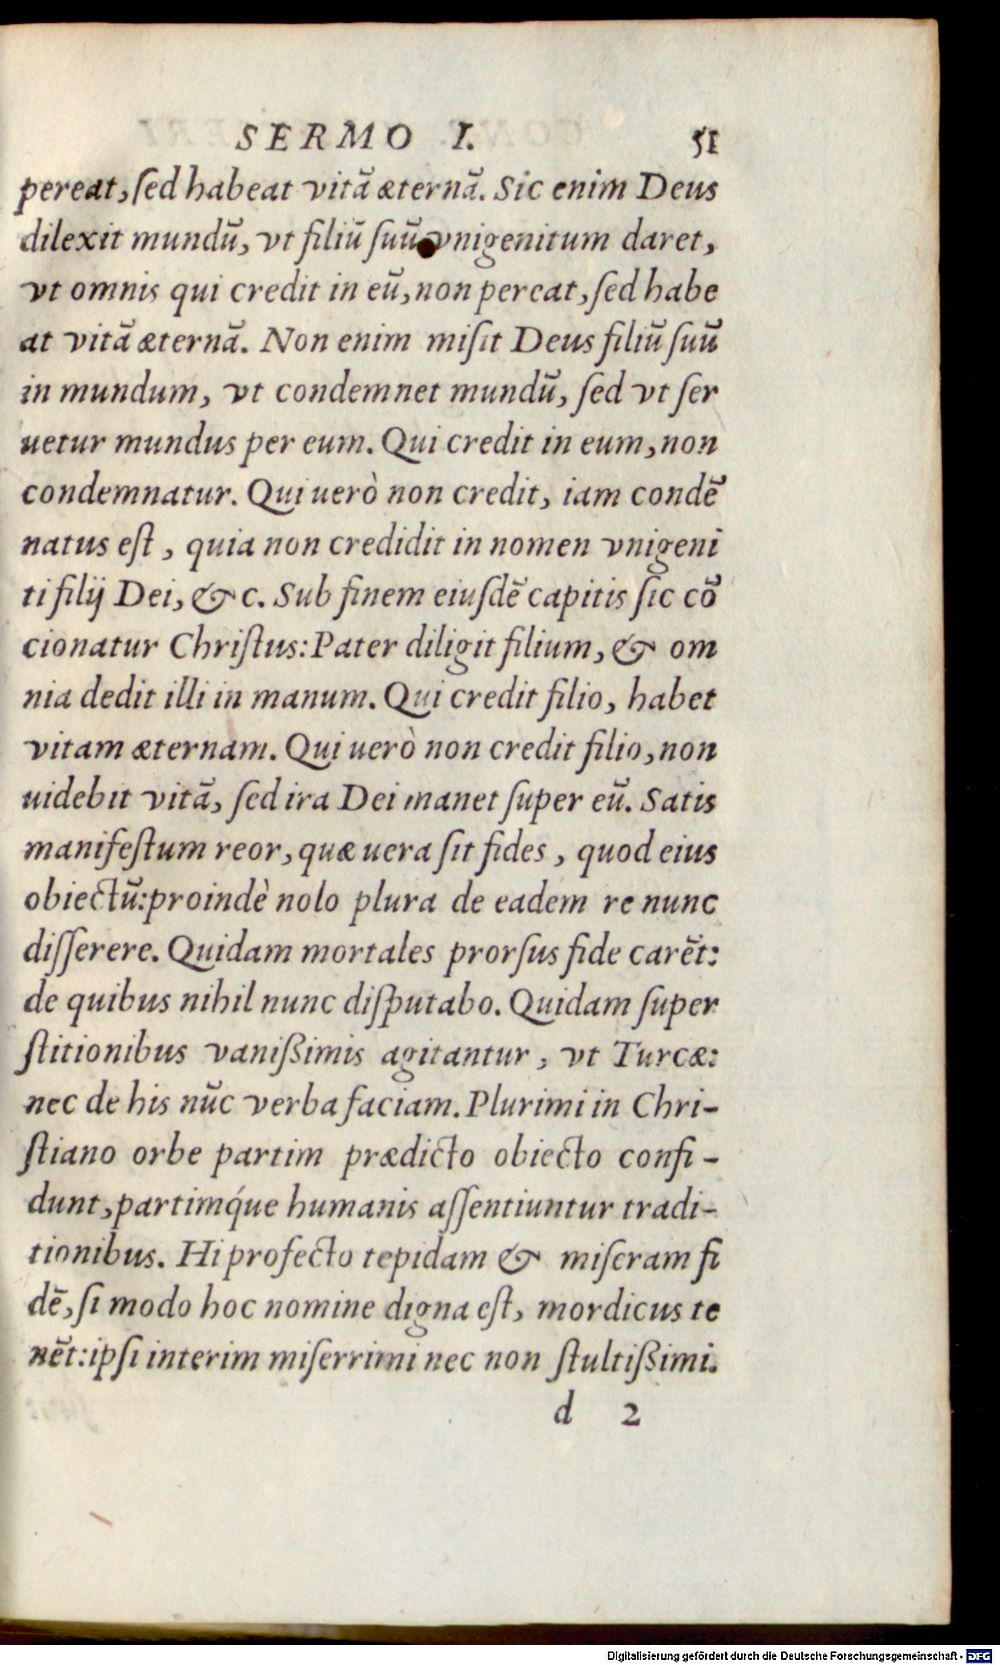 SERMO I. 51
pereat, sed habeat vitã æternã. Sic enim Deus
dilexit mundũ, vt filiũ suũ vnigenitum daret,
vt omnis qui credit in eũ, non pereat, sed habe
at vitã æternã. Non enim misit Deus filiũ suũ
in mundum, vt condemnet mundũ, sed vt ser
uetur mundus per eum. Qui credit in eum, non
condemnatur. Qui uerò non credit, iam condẽ
natus est, quia non credidit in nomen vnigeni
ti filij Dei, & c. Sub finem eiusdẽ capitis sic cõ
cionatur Christus: Pater diligit filium, & om
nia dedit illi in manum. Qui credit filio, habet
vitam æternam. Qui uerò non credit filio, non
uidebit vitã, sed ira Dei manet super eũ. Satis
manifestum reor, quæ uera sit fides, quod eius
obiectũ: proindè nolo plura de eadem re nunc
disserere. Quidam mortales prorsus fide carẽt:
de quibus nihil nunc disputabo. Quidam super
stitionibus vanißimis agitantur, vt Turcæ:
nec de his nũc verba faciam. Plurimi in Chri-
stiano orbe partim prædicto obiecto confi-
dunt, partimq́ue humanis assentiuntur tradi-
tionibus. Hi profecto tepidam & miseram fi
dẽ, si modo hoc nomine digna est, mordicus te
nẽt: ipsi interim miserrimi nec non stultißimi.
d 2
Digitalisierung gefördert durch die Deutsche Forschungsgemeinschaft - DFG